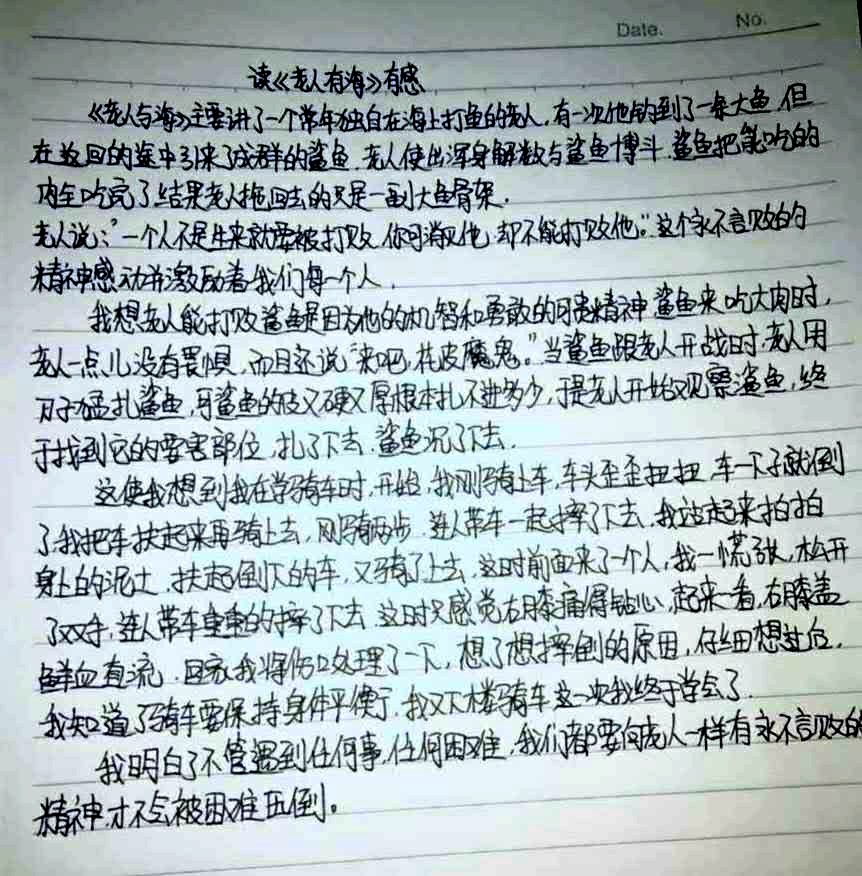 Date. No.
读《老人有海》有感
《老人与海》主要讲了一个常年独自在海上打鱼的老人,有一次他钓到了一条大鱼,但
在返回的途中引来了成群的鲨鱼,老人使出浑身解数与鲨鱼博斗,鲨鱼把能吃的
肉全吃完了结果老人拖回去的只是一副大鱼骨架.
老人说:"一个人不是生来就要被打败,你可消灭他,却不能打败他."这个永不言败的
精神感动并激励着我们每一个人.
我想老人能打败鲨鱼是因为他的机智和勇敢的可贵精神 鲨鱼来吃大肉时,
老人一点儿没有畏惧,而且还说"来吧,花皮魔鬼."当鲨鱼跟老人开战时,老人用
刀子猛扎鲨鱼,可鲨鱼的皮又硬又厚根本扎不进多少,于是老人开始观察鲨鱼,终
于找到它的要害部位,扎了下去,鲨鱼沉了下去.
这使我想到我在学骑车时,开始,我刚骑上车,车头歪歪扭扭,车一下子就倒
了,我把车扶起来再骑上去,刚骑两步,连人带车一起摔了下去,我站起来拍拍
身上的泥土,扶起倒下的车,又骑了上去,这时前面来了一个人,我一慌张,松开
了双手,连人带车重重的摔了下去,这时只感觉右膝痛得钻心,起来一看,右膝盖
鲜血直流.回家我将伤口处理了一下,想了想摔倒的原因,仔细想过后,
我知道了骑车要保持身体平衡,我又下楼骑车这一次我终于学会了.
我明白了不管遇到任何事,任何困难,我们都要向老人一样有永不言败的
精神,才不会被困难压倒。